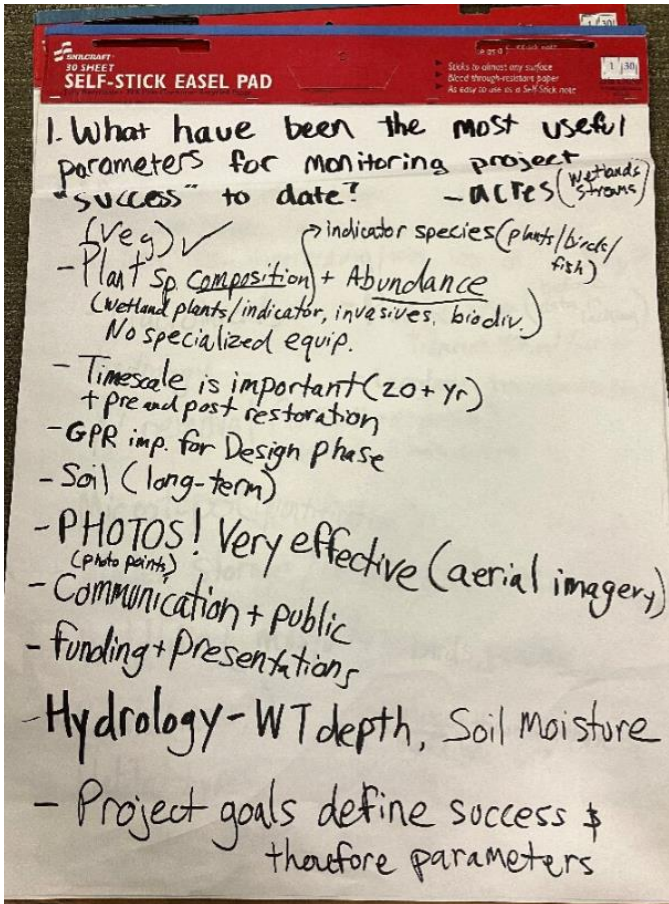 SKILCRAFT
30 SHEET
SELF-STICK EASEL PAD
Sticks to almost any surface
Bleed through-resistant paper
As easy to use as a Self-Stick note
1. What have been the most useful
parameters for monitoring project
"success" to date? - acres (wetlands
streams)
(veg) ✓
→ indicator species (plants/birds/
fish)
- Plant sp. composition + Abundance
(wetland plants/indicator, invasives, biodiv.)
No specialized equip.
- Timescale is important (20+ yr)
+ pre and post restoration
- GPR imp. for Design phase
- Soil (long-term)
- PHOTOS! Very effective (aerial imagery)
(photo points)
- Communication + public
- funding + presentations
- Hydrology - WT depth, Soil Moisture
- Project goals define success &
therefore parameters